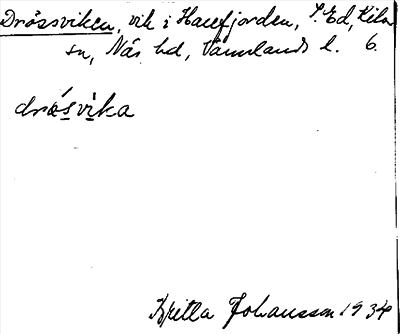 Drössviken, vik i Harefjorden, S. Ed, Kila
sn, Näs hd, Värmlands l. 6.
drǿsvìka
Britta Johansson 1934